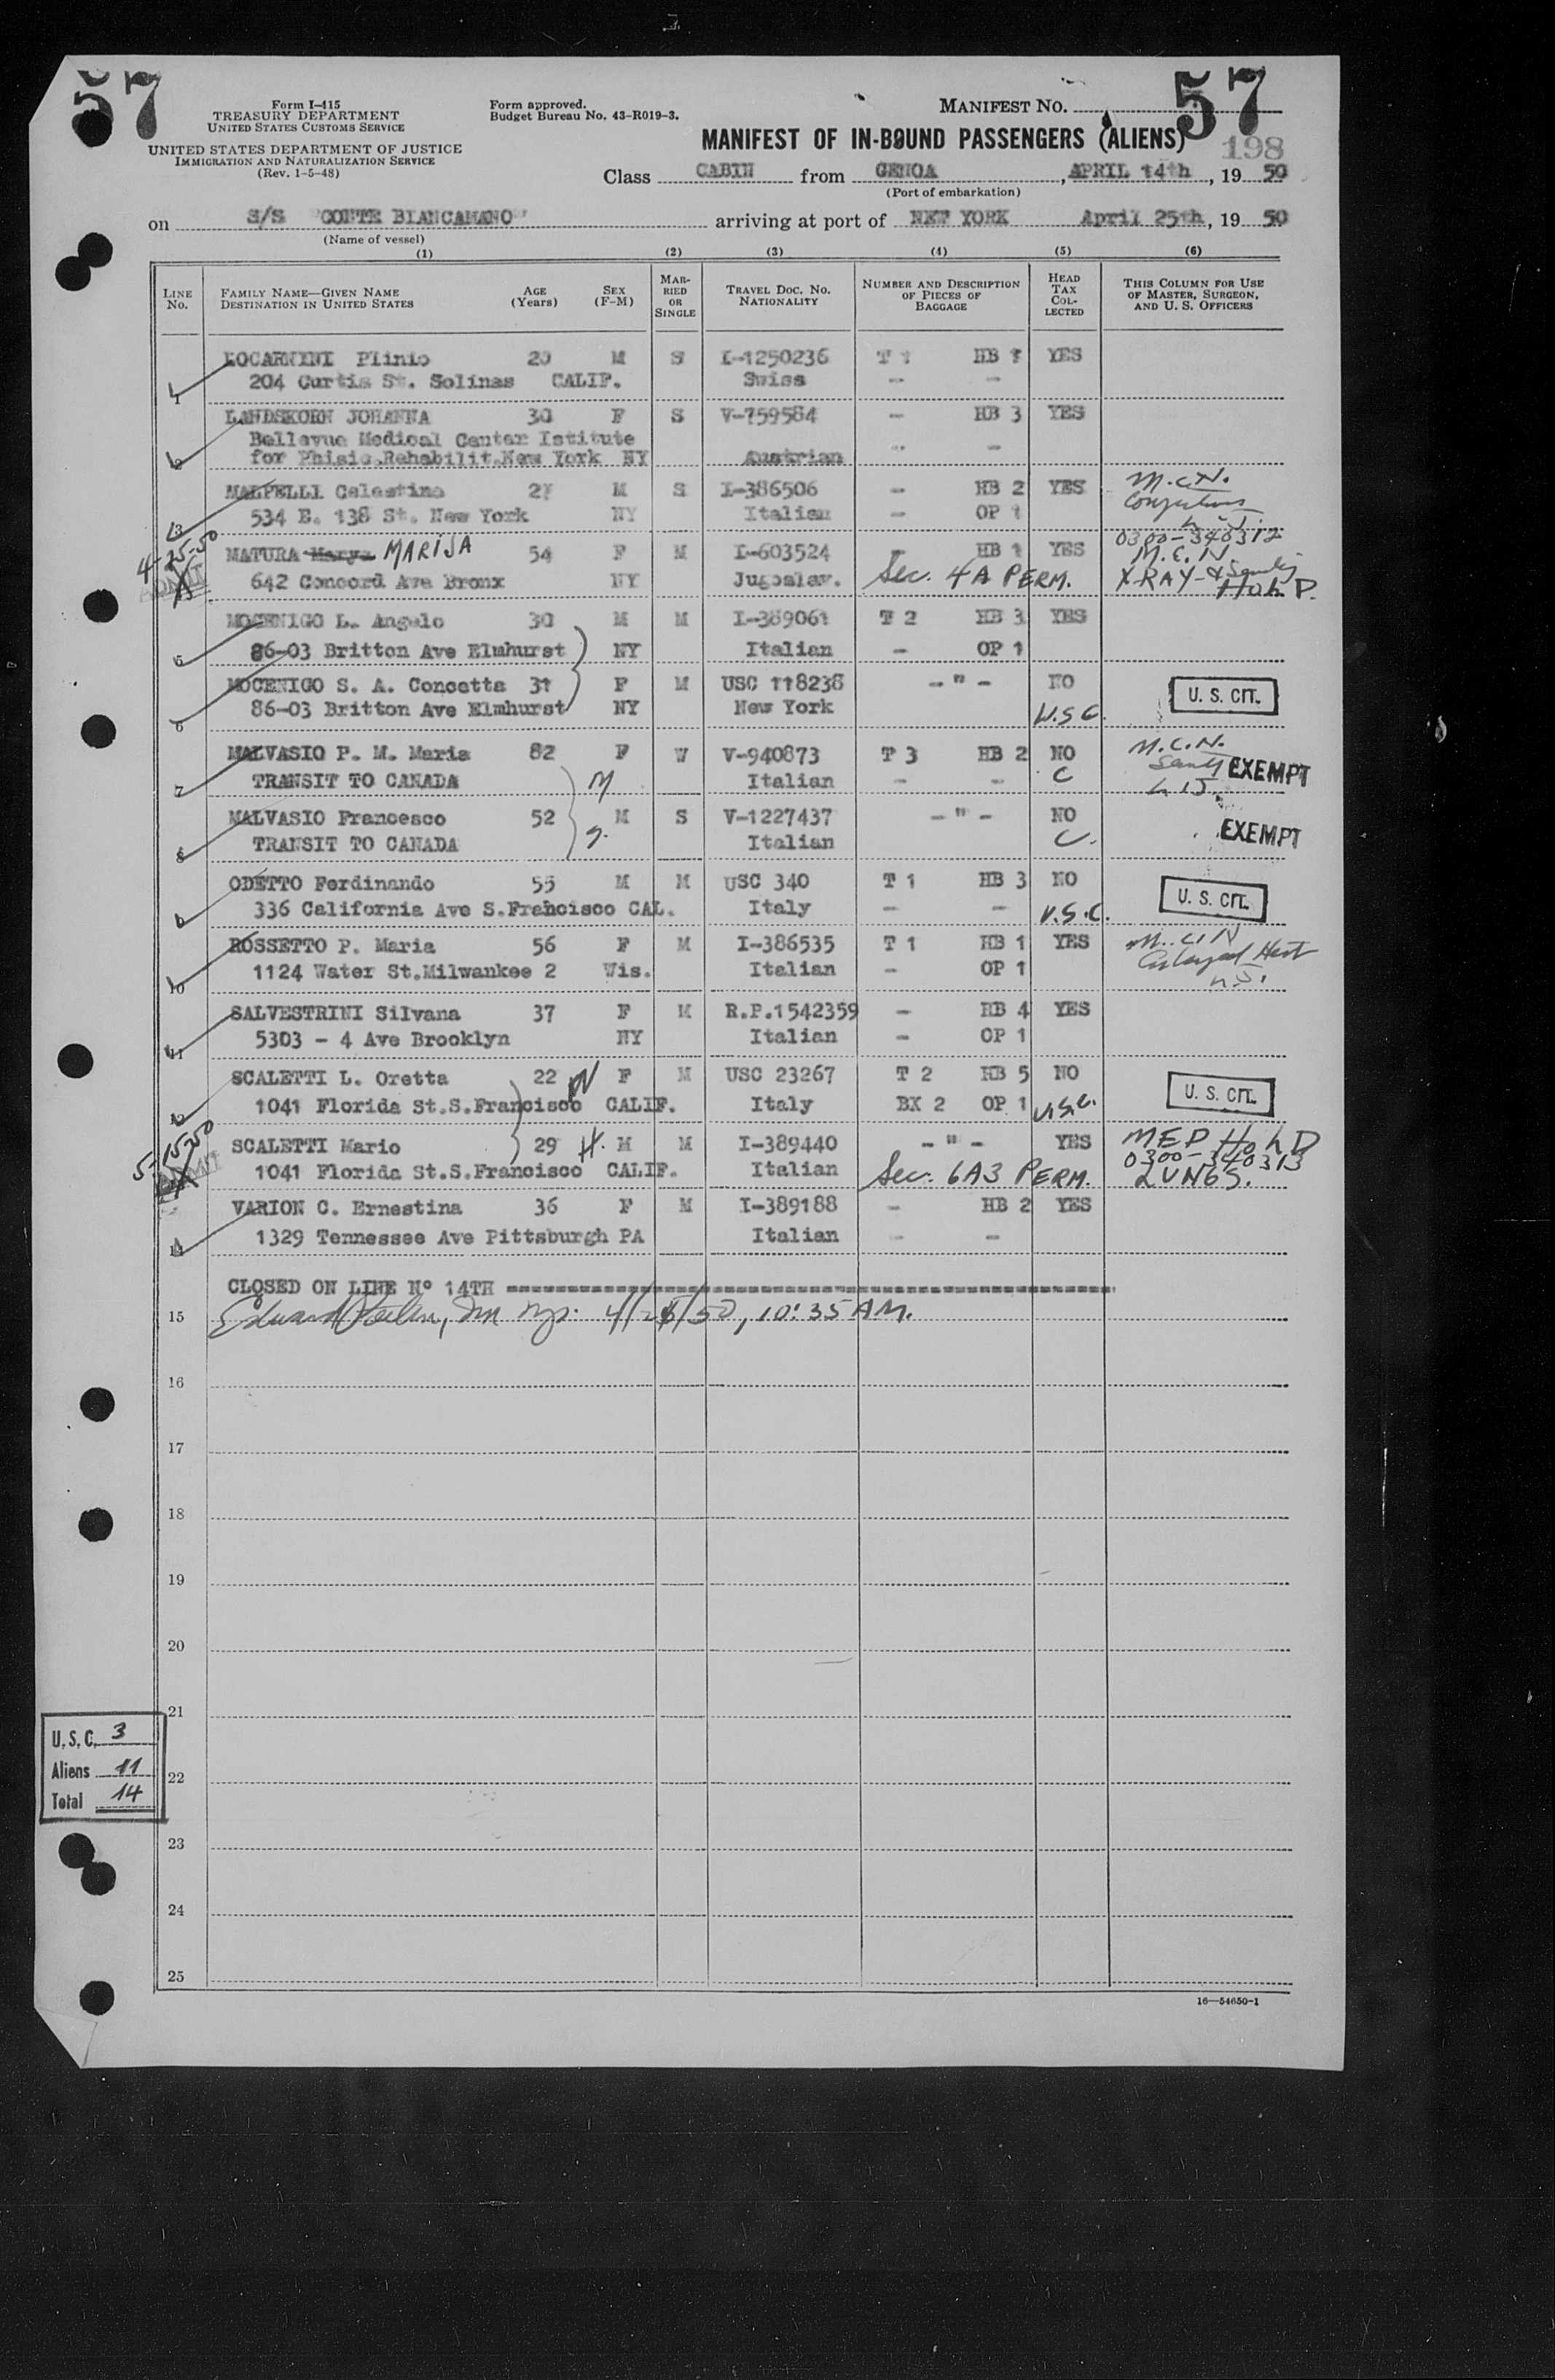 57
57
198
Form I-415
TREASURY DEPARTMENT
UNITED STATES CUSTOMS SERVICE
UNITED STATES DEPARTMENT OF JUSTICE
IMMIGRATION AND NATURALIZATION SERVICE
(Rev. 1-5-48)
Form approved.
Budget Bureau No. 43-R019-3.
MANIFEST NO.
MANIFEST OF IN-BOUND PASSENGERS (ALIENS)
Class CABIN from GENOA, APRIL 14th, 19 50
(Port of embarkation)
on S/S "CONTE BIANCAMANO" arriving at port of NEW YORK April 25th, 19 50
(Name of vessel)
(1) (2) (3) (4) (5) (6)
LINE No.
FAMILY NAME—GIVEN NAME
DESTINATION IN UNITED STATES
AGE (Years)
SEX (F-M)
MARRIED OR SINGLE
TRAVEL DOC. NO. NATIONALITY
NUMBER AND DESCRIPTION OF PIECES OF BAGGAGE
HEAD TAX COLLECTED
THIS COLUMN FOR USE OF MASTER, SURGEON, AND U. S. OFFICERS
LOCARNINI Plinio M S I-1250236 T 1 HB 1 YES
1 204 Curtis St. Solinas CALIF. Swiss - -
LANDSKORN JOHANNA 30 F S V-759584 - HB 3 YES
Bellevue Medical Center Istitute
2 for Phisic.Rehabilit.New York NY Austrian - -
MALPELLI Celestino M S I-386506 - HB 2 YES M.C.N.
3 534 E. 138 St. New York NY Italian - OP 1
4-25-50 ADMIT
MATURA Marya MARIJA 54 F M I-603524 - HB 1 YES 0300-340312 M.C.N
642 Concord Ave Bronx NY Jugoslav. Sec. 4A PERM. X-RAY-
MOCENIGO L. Angelo 30 M M I-389061 T 2 HB 3 YES
5 86-03 Britton Ave Elmhurst NY Italian - OP 1
MOCENIGO S. A. Concetta 31 F M USC 118238 - " - NO U. S. CIT.
6 86-03 Britton Ave Elmhurst NY New York U.S.C.
MALVASIO P. M. Maria 82 F W V-940873 T 3 HB 2 NO M.C.N. EXEMPT
7 TRANSIT TO CANADA M Italian - - C
MALVASIO Francesco 52 M S V-1227437 - " - NO EXEMPT
8 TRANSIT TO CANADA Italian C.
ODETTO Ferdinando 55 M M USC 340 T 1 HB 3 NO U. S. CIT.
9 336 California Ave S.Francisco CAL. Italy - - U.S.C.
ROSSETTO P. Maria 56 F M I-386535 T 1 HB 1 YES M.C.N
10 1124 Water St.Milwankee 2 Wis. Italian - OP 1
SALVESTRINI Silvana 37 F M R.P.1542359 - HB 4 YES
11 5303 - 4 Ave Brooklyn NY Italian - OP 1
SCALETTI L. Oretta 22 W F M USC 23267 T 2 HB 5 NO U. S. CIT.
12 1041 Florida St.S.Francisco CALIF. Italy BX 2 OP 1 U.S.C.
5-15-50 ADMIT
SCALETTI Mario 29 H. M M I-389440 - " - YES
1041 Florida St.S.Francisco CALIF. Italian Sec. 6A3 PERM. 0300-340313 LUNGS.
VARION C. Ernestina 36 F M I-389188 - HB 2 YES
14 1329 Tennessee Ave Pittsburgh PA Italian - -
CLOSED ON LINE N° 14TH
15 4/25/50, 10:35 AM.
16
17
18
19
20
21
22
23
24
25
U.S.C. 3
Aliens 11
Total 14
16—54650-1